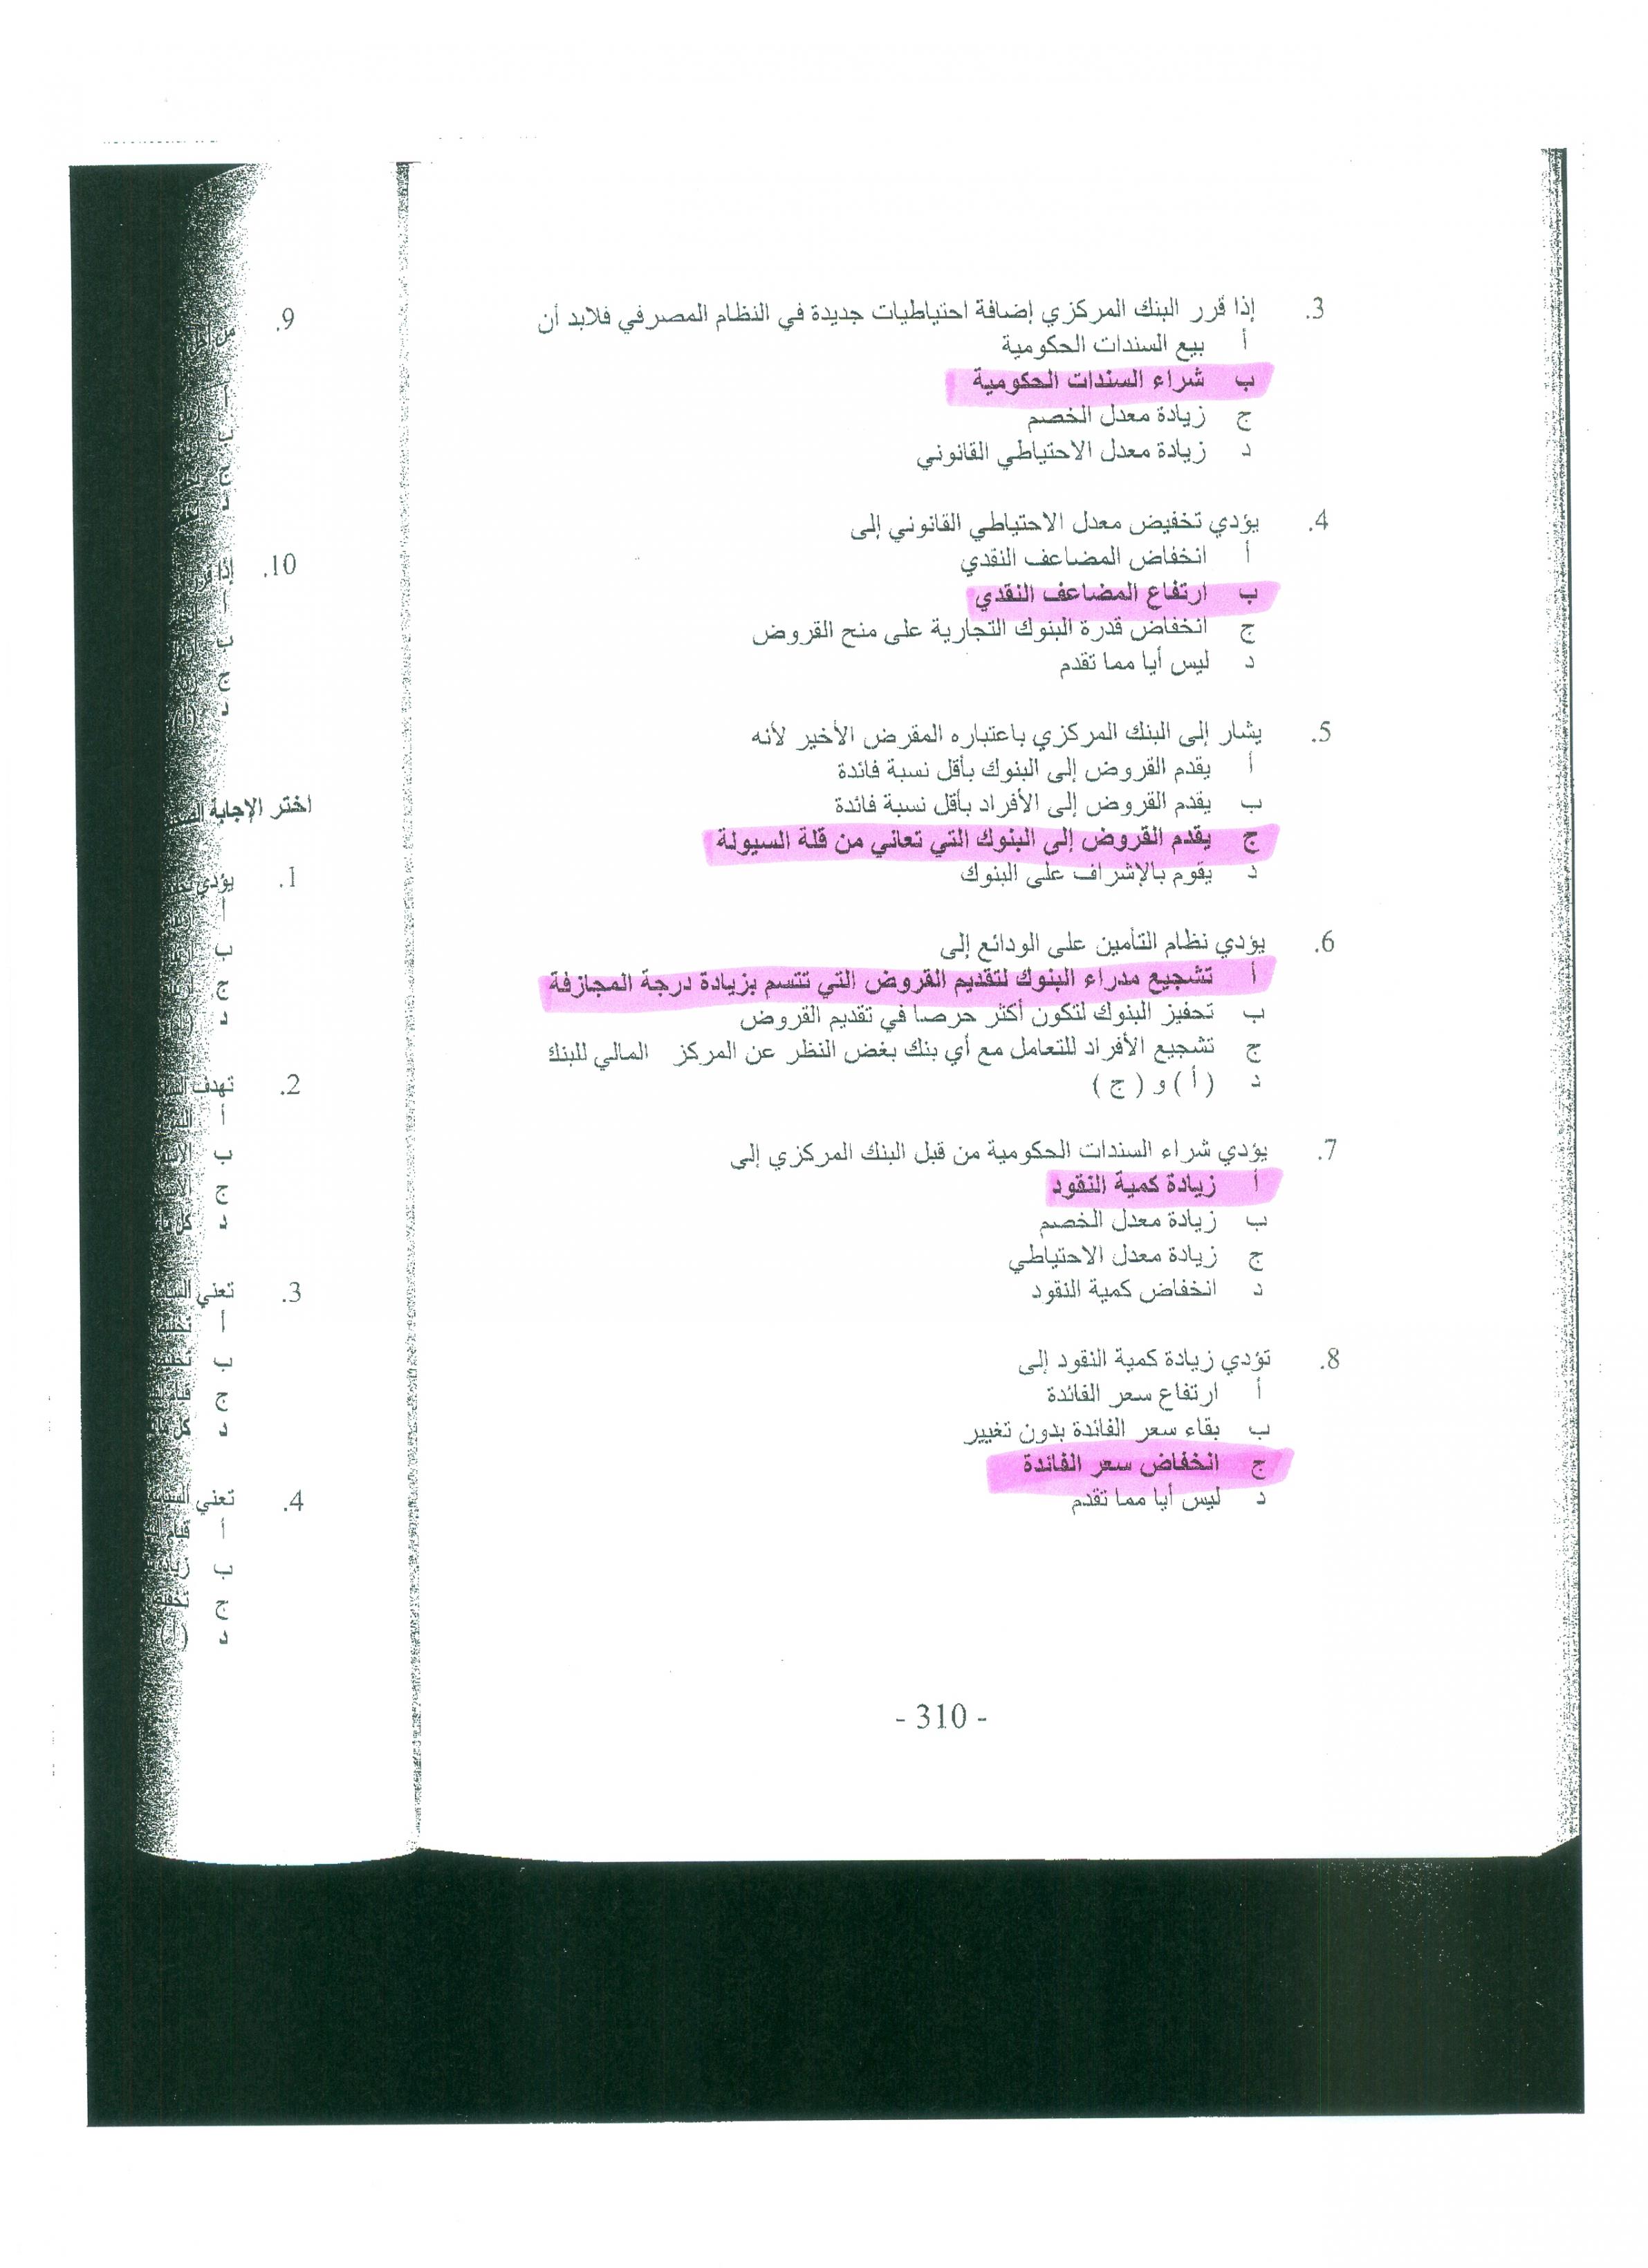 3. إذا قرر البنك المركزي إضافة احتياطيات جديدة في النظام المصرفي فلابد أن
أ بيع السندات الحكومية
ب شراء السندات الحكومية
ج زيادة معدل الخصم
د زيادة معدل الاحتياطي القانوني
4. يؤدي تخفيض معدل الاحتياطي القانوني إلى
أ انخفاض المضاعف النقدي
ب ارتفاع المضاعف النقدي
ج انخفاض قدرة البنوك التجارية على منح القروض
د ليس أيا مما تقدم
5. يشار إلى البنك المركزي باعتباره المقرض الأخير لأنه
أ يقدم القروض إلى البنوك بأقل نسبة فائدة
ب يقدم القروض إلى الأفراد بأقل نسبة فائدة
ج يقدم القروض إلى البنوك التي تعاني من قلة السيولة
د يقوم بالإشراف على البنوك
6. يؤدي نظام التأمين على الودائع إلى
أ تشجيع مدراء البنوك لتقديم القروض التي تتسم بزيادة درجة المجازفة
ب تحفيز البنوك لتكون أكثر حرصا في تقديم القروض
ج تشجيع الأفراد للتعامل مع أي بنك بغض النظر عن المركز المالي للبنك
د ( أ ) و ( ج )
7. يؤدي شراء السندات الحكومية من قبل البنك المركزي إلى
أ زيادة كمية النقود
ب زيادة معدل الخصم
ج زيادة معدل الاحتياطي
د انخفاض كمية النقود
8. تؤدي زيادة كمية النقود إلى
أ ارتفاع سعر الفائدة
ب بقاء سعر الفائدة بدون تغيير
ج انخفاض سعر الفائدة
د ليس أيا مما تقدم
- 310 -
9.
أ
ب
ج
د
10. إذا
أ
ب
ج
د
اختر الإجابة
1. يؤدي
أ
ب
ج
د
2. تهدف
أ
ب
ج
د
3. تعني
أ
ب
ج
د
4. تعني
أ
ب
ج
د